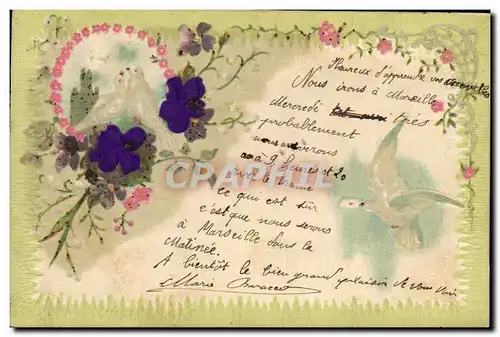 Heureux d'apprendre vos nouvelles
Nous irons à Marseille
Mercredi très
probablement
nous arriverons
à 9 heures et 20
avec le trame
ce qui est sûr
c'est que nous serons
à Marseille dans la
Matinée.
A bientôt le bien grand plaisir de vous voir
Marie
CPAPHIL